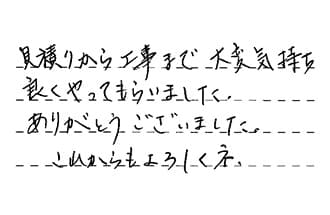 見積りから工事まで 大変気持ち
良くやってもらいました。
ありがとうございました。
これからもよろしくネ.